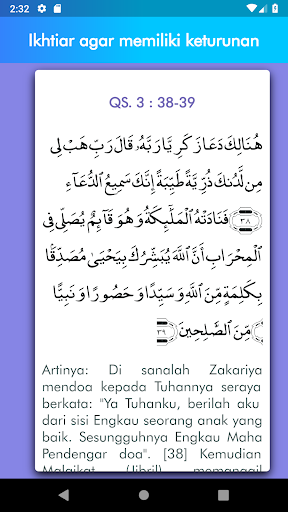 2:32
Ikhtiar agar memiliki keturunan
QS. 3 : 38-39
هُنَالِكَ دَعَا زَكَرِيَّا رَبَّهُۥ قَالَ رَبِّ هَبْ لِى
مِن لَّدُنكَ ذُرِّيَّةً طَيِّبَةً إِنَّكَ سَمِيعُ ٱلدُّعَآءِ
﴿٣٨﴾ فَنَادَتْهُ ٱلْمَلَـٰٓئِكَةُ وَهُوَ قَآئِمٌ يُصَلِّى فِى
ٱلْمِحْرَابِ أَنَّ ٱللَّهَ يُبَشِّرُكَ بِيَحْيَىٰ مُصَدِّقًۢا
بِكَلِمَةٍ مِّنَ ٱللَّهِ وَسَيِّدًا وَحَصُورًا وَنَبِيًّا
مِّنَ ٱلصَّـٰلِحِينَ ﴿٣٩﴾
Artinya: Di sanalah Zakariya
mendoa kepada Tuhannya seraya
berkata: "Ya Tuhanku, berilah aku
dari sisi Engkau seorang anak yang
baik. Sesungguhnya Engkau Maha
Pendengar doa". [38] Kemudian
Malaikat (Jibril) memanggil